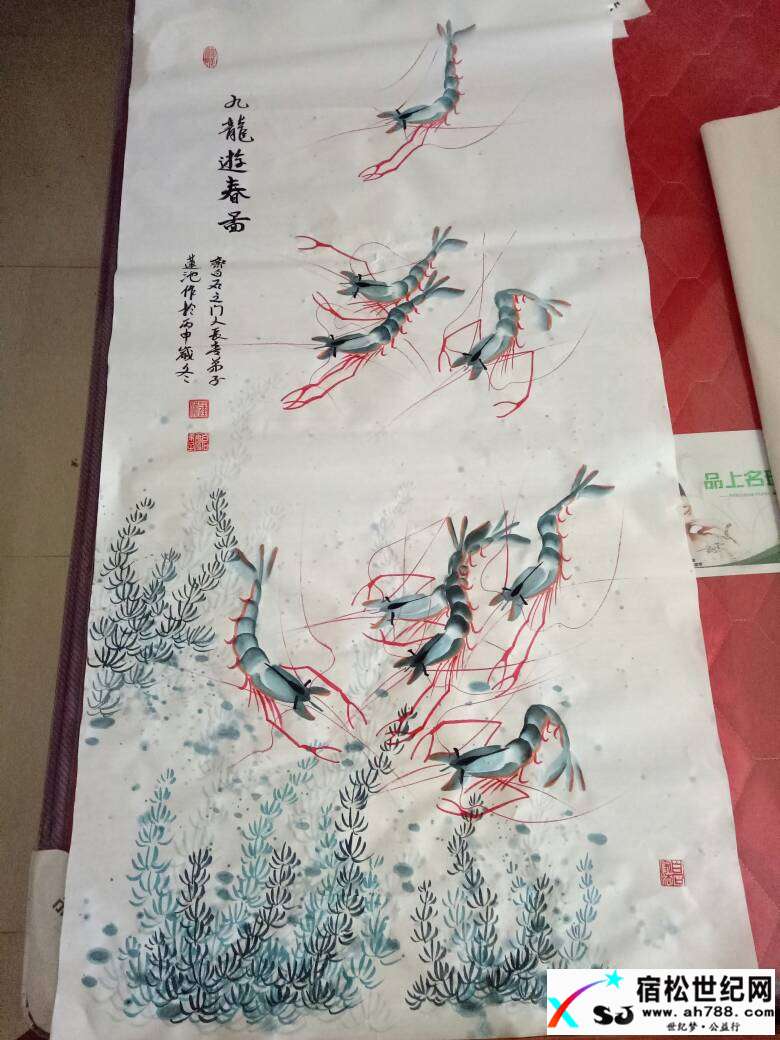 九龍遊春圖
齊白石之门人長青弟子
蓮池作於丙申歲冬
品上名
宿松世纪网
XSJ
www.ah788.com
世纪梦·公益行